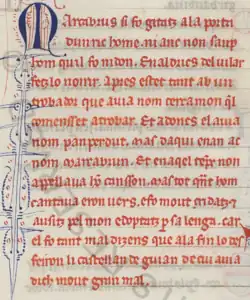 Marcabrus si fo gitatz a la porta
dun ric home. ni anc non saup
hom quil fo ni don. En aldrics del vilar
fetz lo noirir. Apres estet tant ab un
trobador que avia nom cercamon qel
comenset a trobar. Et adones el avia
nom panperdut. mas daqui enan ac
nom marcabrun. Et en aqel temps non
appellava hom cansson. mas tot qant hom
cantava eron vers. e fo mout cridatz et
ausitz pel mon e doptatz per sa lenga. car
el fo tant maldizens que a la fin lo des
feiron li castellan de guian de cui avia
dich mout gran mal.